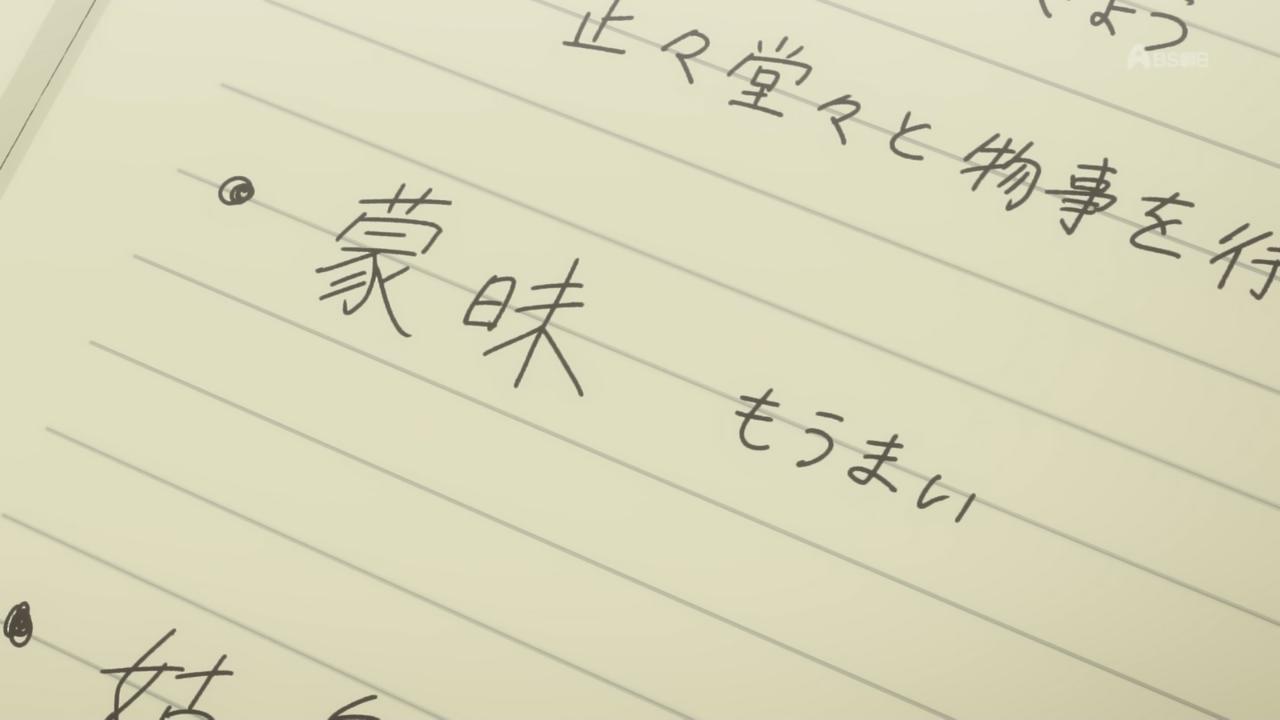 よう
正々堂々と物事を行
• 蒙昧 もうまい
•
BS朝日